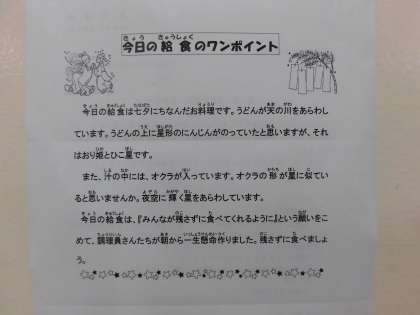 今日の給食のワンポイント
今日の給食は七夕にちなんだお料理です。うどんが天の川をあらわし
ています。うどんの上に星形のにんじんがのっていたと思いますが、それ
はおり姫とひこ星です。
また、汁の中には、オクラが入っています。オクラの形が星に似てい
ると思いませんか。夜空に輝く星をあらわしています。
今日の給食は、『みんなが残さずに食べてくれるように』という願いをこ
めて、調理員さんたちが朝から一生懸命作りました。残さずに食べましょ
う。